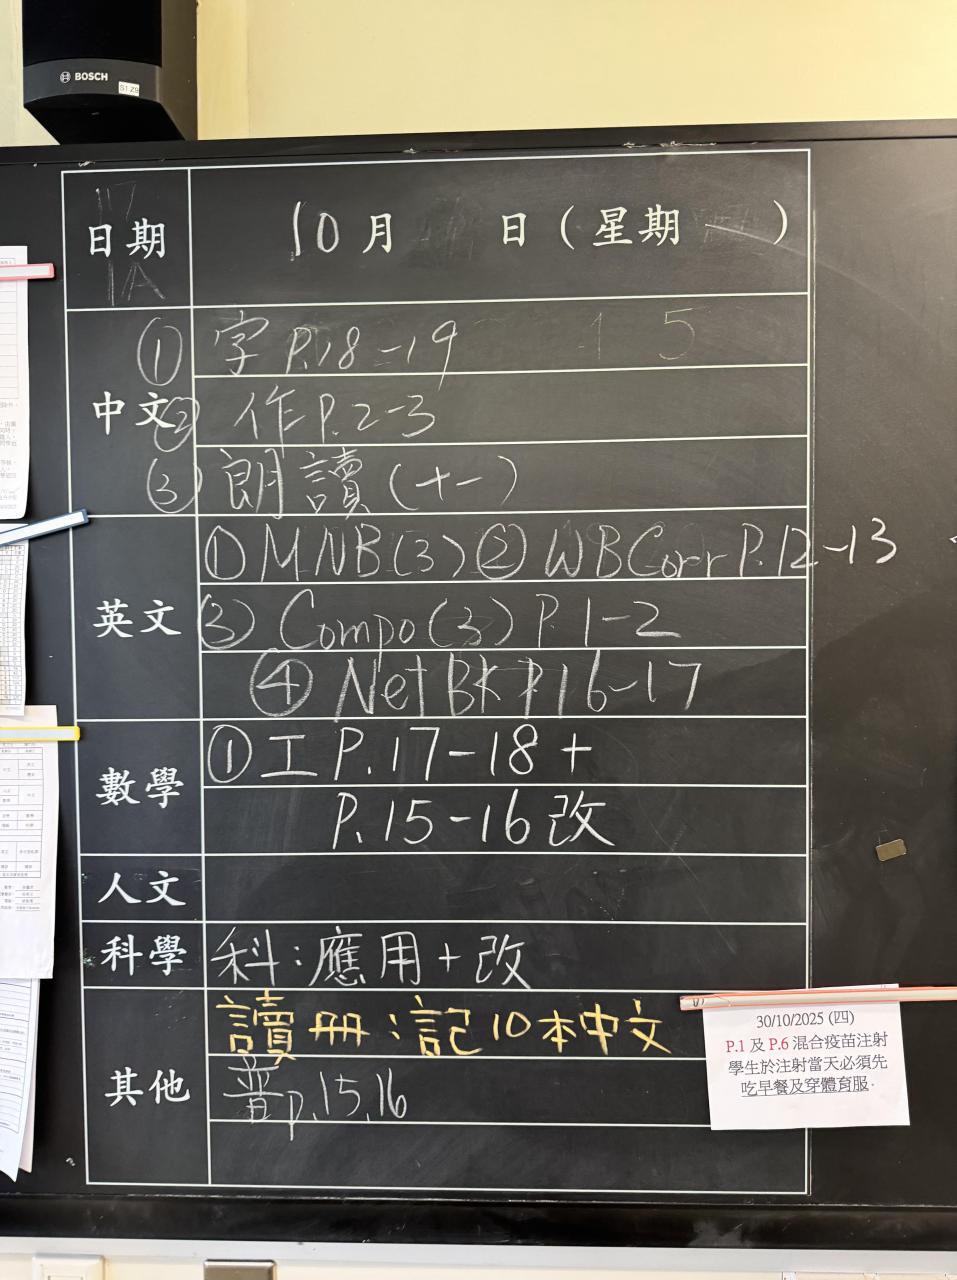 BOSCH
S1 Z9
日期 10月 日(星期 )
中文
① 字 P.18-19
② 作 P.2-3
③ 朗讀(十一)
英文
① MNB(3) ② WBCorr P.12-13
③ Compo(3) P.1-2
④ NetBK P.16-17
數學
① 工 P.17-18 +
P.15-16 改
人文
科學
科:應用+改
其他
讀册:記10本中文
普p.15,16
30/10/2025 (四)
P.1 及 P.6 混合疫苗注射
學生於注射當天必須先
吃早餐及穿體育服.